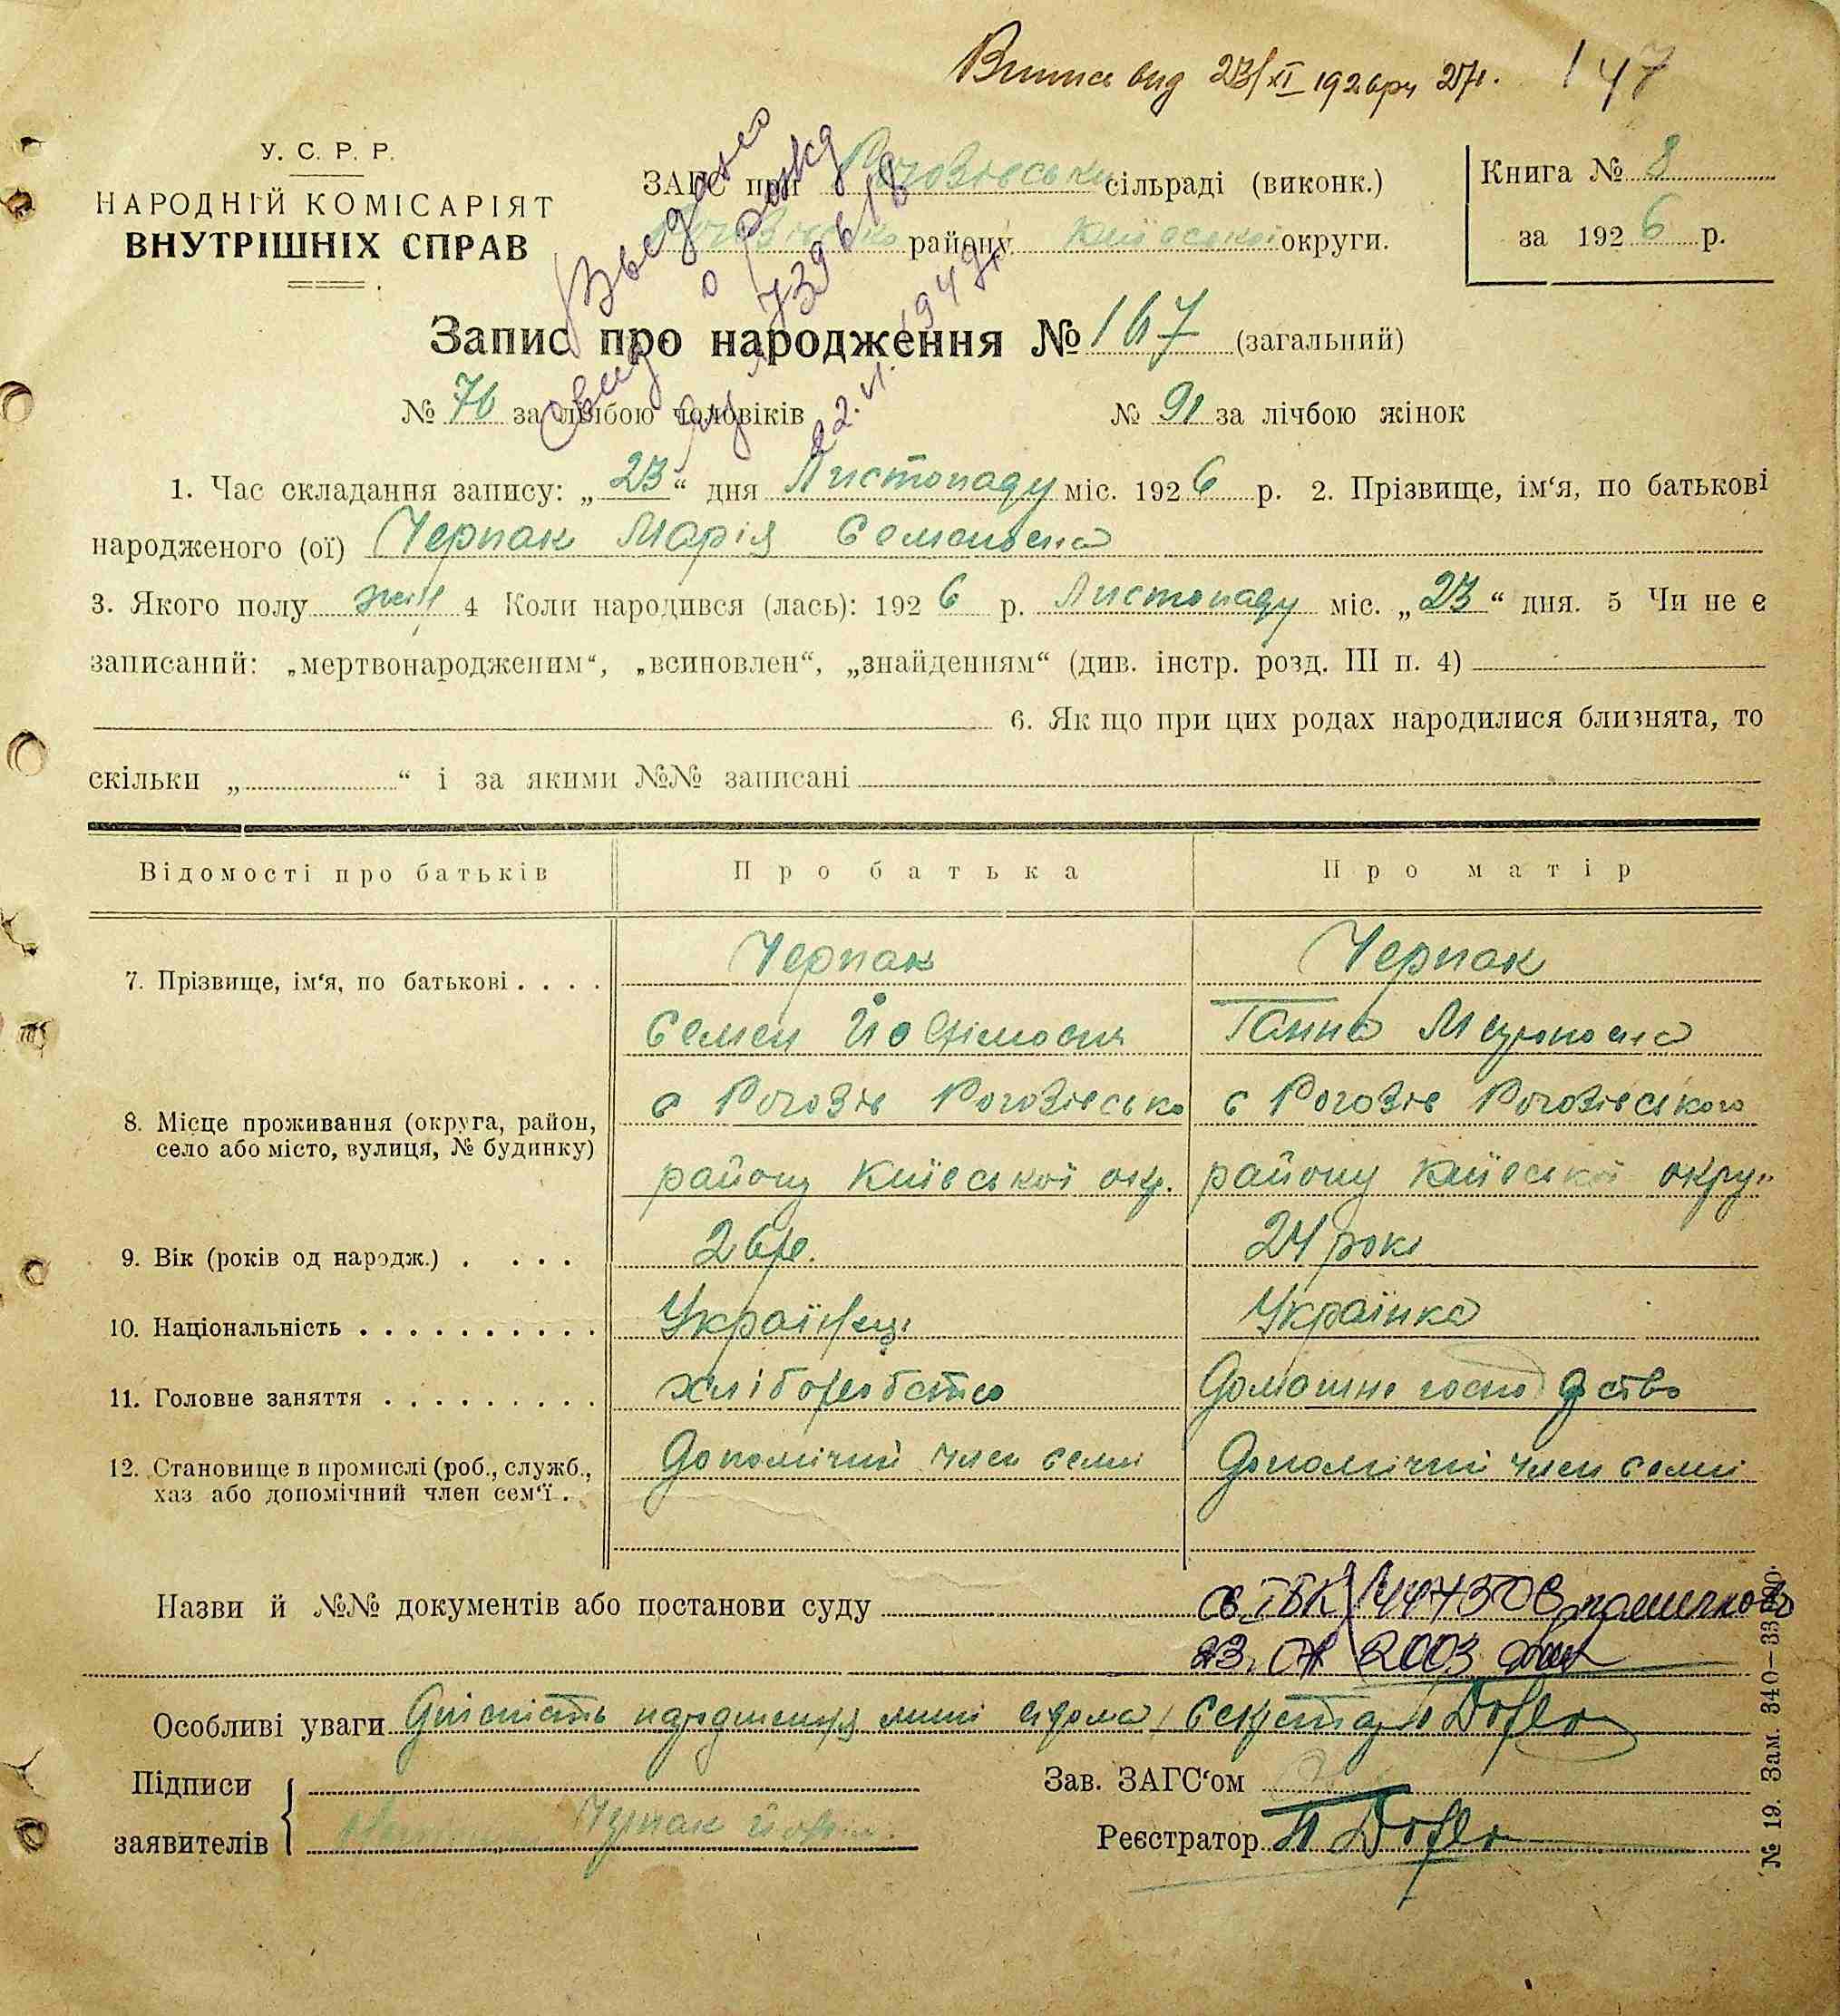 Випись вид 23/XI 1926р 147
У. С. Р. Р.
НАРОДНІЙ КОМІСАРІЯТ
ВНУТРІШНІХ СПРАВ
ЗАГС при Рогозівській сільраді (виконк.)
Рогозівсько району Київської округи.
Книга № 8
за 1926 р.
Запис про народження № 167 (загальний)
№ 76 за лічбою чоловіків № 91 за лічбою жінок
1. Час складання запису: „23“ дня Листопаду міс. 1926 р. 2. Прізвище, ім‘я, по батькові
народженого (ої) Черпак Марія Семеновна
3. Якого полу жін 4 Коли народився (лась): 1926 р. Листопаду міс. „23“ дня. 5 Чи не є
записаний: „мертвонародженим“, „всиновлен“, „знайденням“ (див. інстр. розд. III п. 4)
6. Як що при цих родах народилися близнята, то
скільки „ “ і за якими №№ записані
Відомості про батьків Про батька Про матір
7. Прізвище, ім‘я, по батькові . . . . Черпак Черпак
Семен Ганна
8. Місце проживання (округа, район, с Рогозів Рогозівсько с Рогозів Рогозівського
село або місто, вулиця, № будинку)
району Київської окр. району Київської окру
9. Вік (років од народж.) . . . . 26р. 24 рокі
10. Національність . . . . . . . . . . Українець Українка
11. Головне заняття . . . . . . . . . хліборобство Домашнє господрство
12. Становище в промислі (роб., служб., Допомічний член семї Допомічний член семї
хаз або допомічний член сем‘ї . .
Назви й №№ документів або постанови суду
2003
Особливі уваги Дійсність народження мині відома, Секретар
Підписи
заявителів Черпак
Зав. ЗАГС‘ом
Реєстратор
№ 19. Зам. 340—33000.